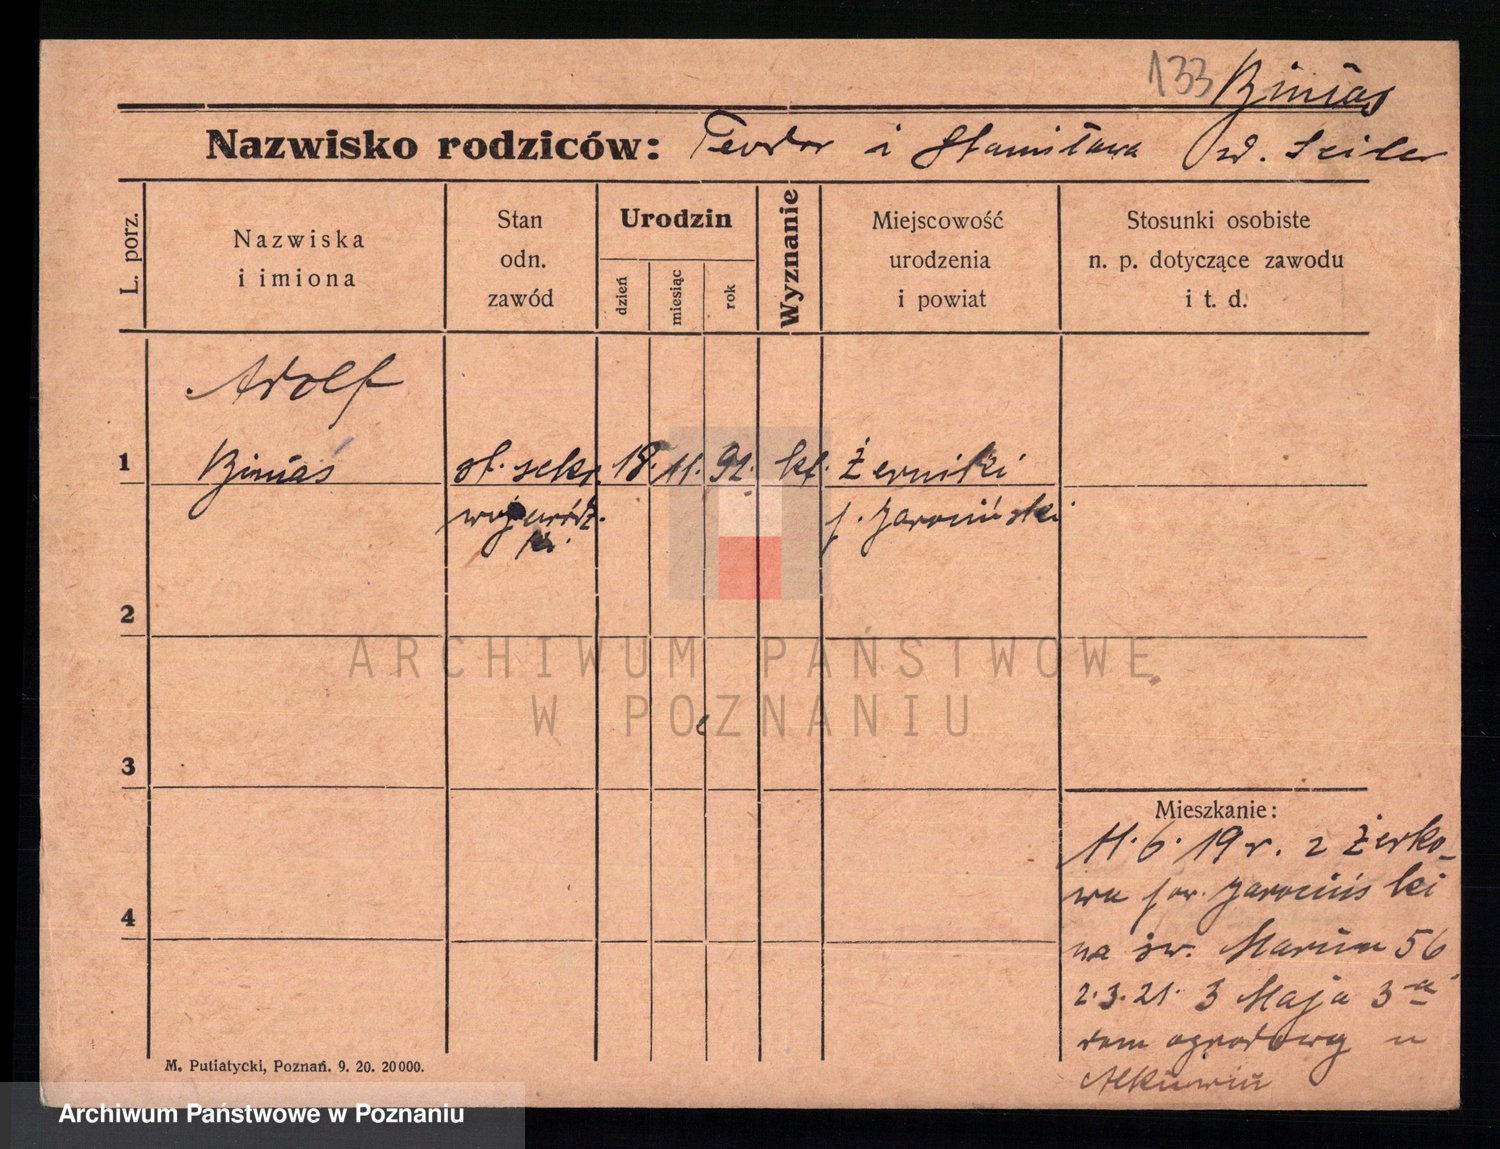 133 Biniaś
Nazwisko rodziców: Teodor i Stanisława z d. Seiler
L. porz.
Nazwiska
i imiona
Stan
odn.
zawód
Urodzin
dzień
miesiąc
rok
Wyznanie
Miejscowość
urodzenia
i powiat
Stosunki osobiste
n. p. dotyczące zawodu
i t. d.
Adolf
1 Biniaś st. sekr. 18. 11. 91. kt. Żerniki
wojewódz. p. Jarociński
ki.
2
ARCHIWUM PAŃSTWOWE
W POZNANIU
3
Mieszkanie:
11. 6. 19 r. z Żerko-
wa pow. Jarociński
na św. Marcin 56
4
2. 3. 21. 3 Maja 3-a
dom ogrodowy u
M. Putiatycki, Poznań. 9. 20. 20000.
Archiwum Państwowe w Poznaniu